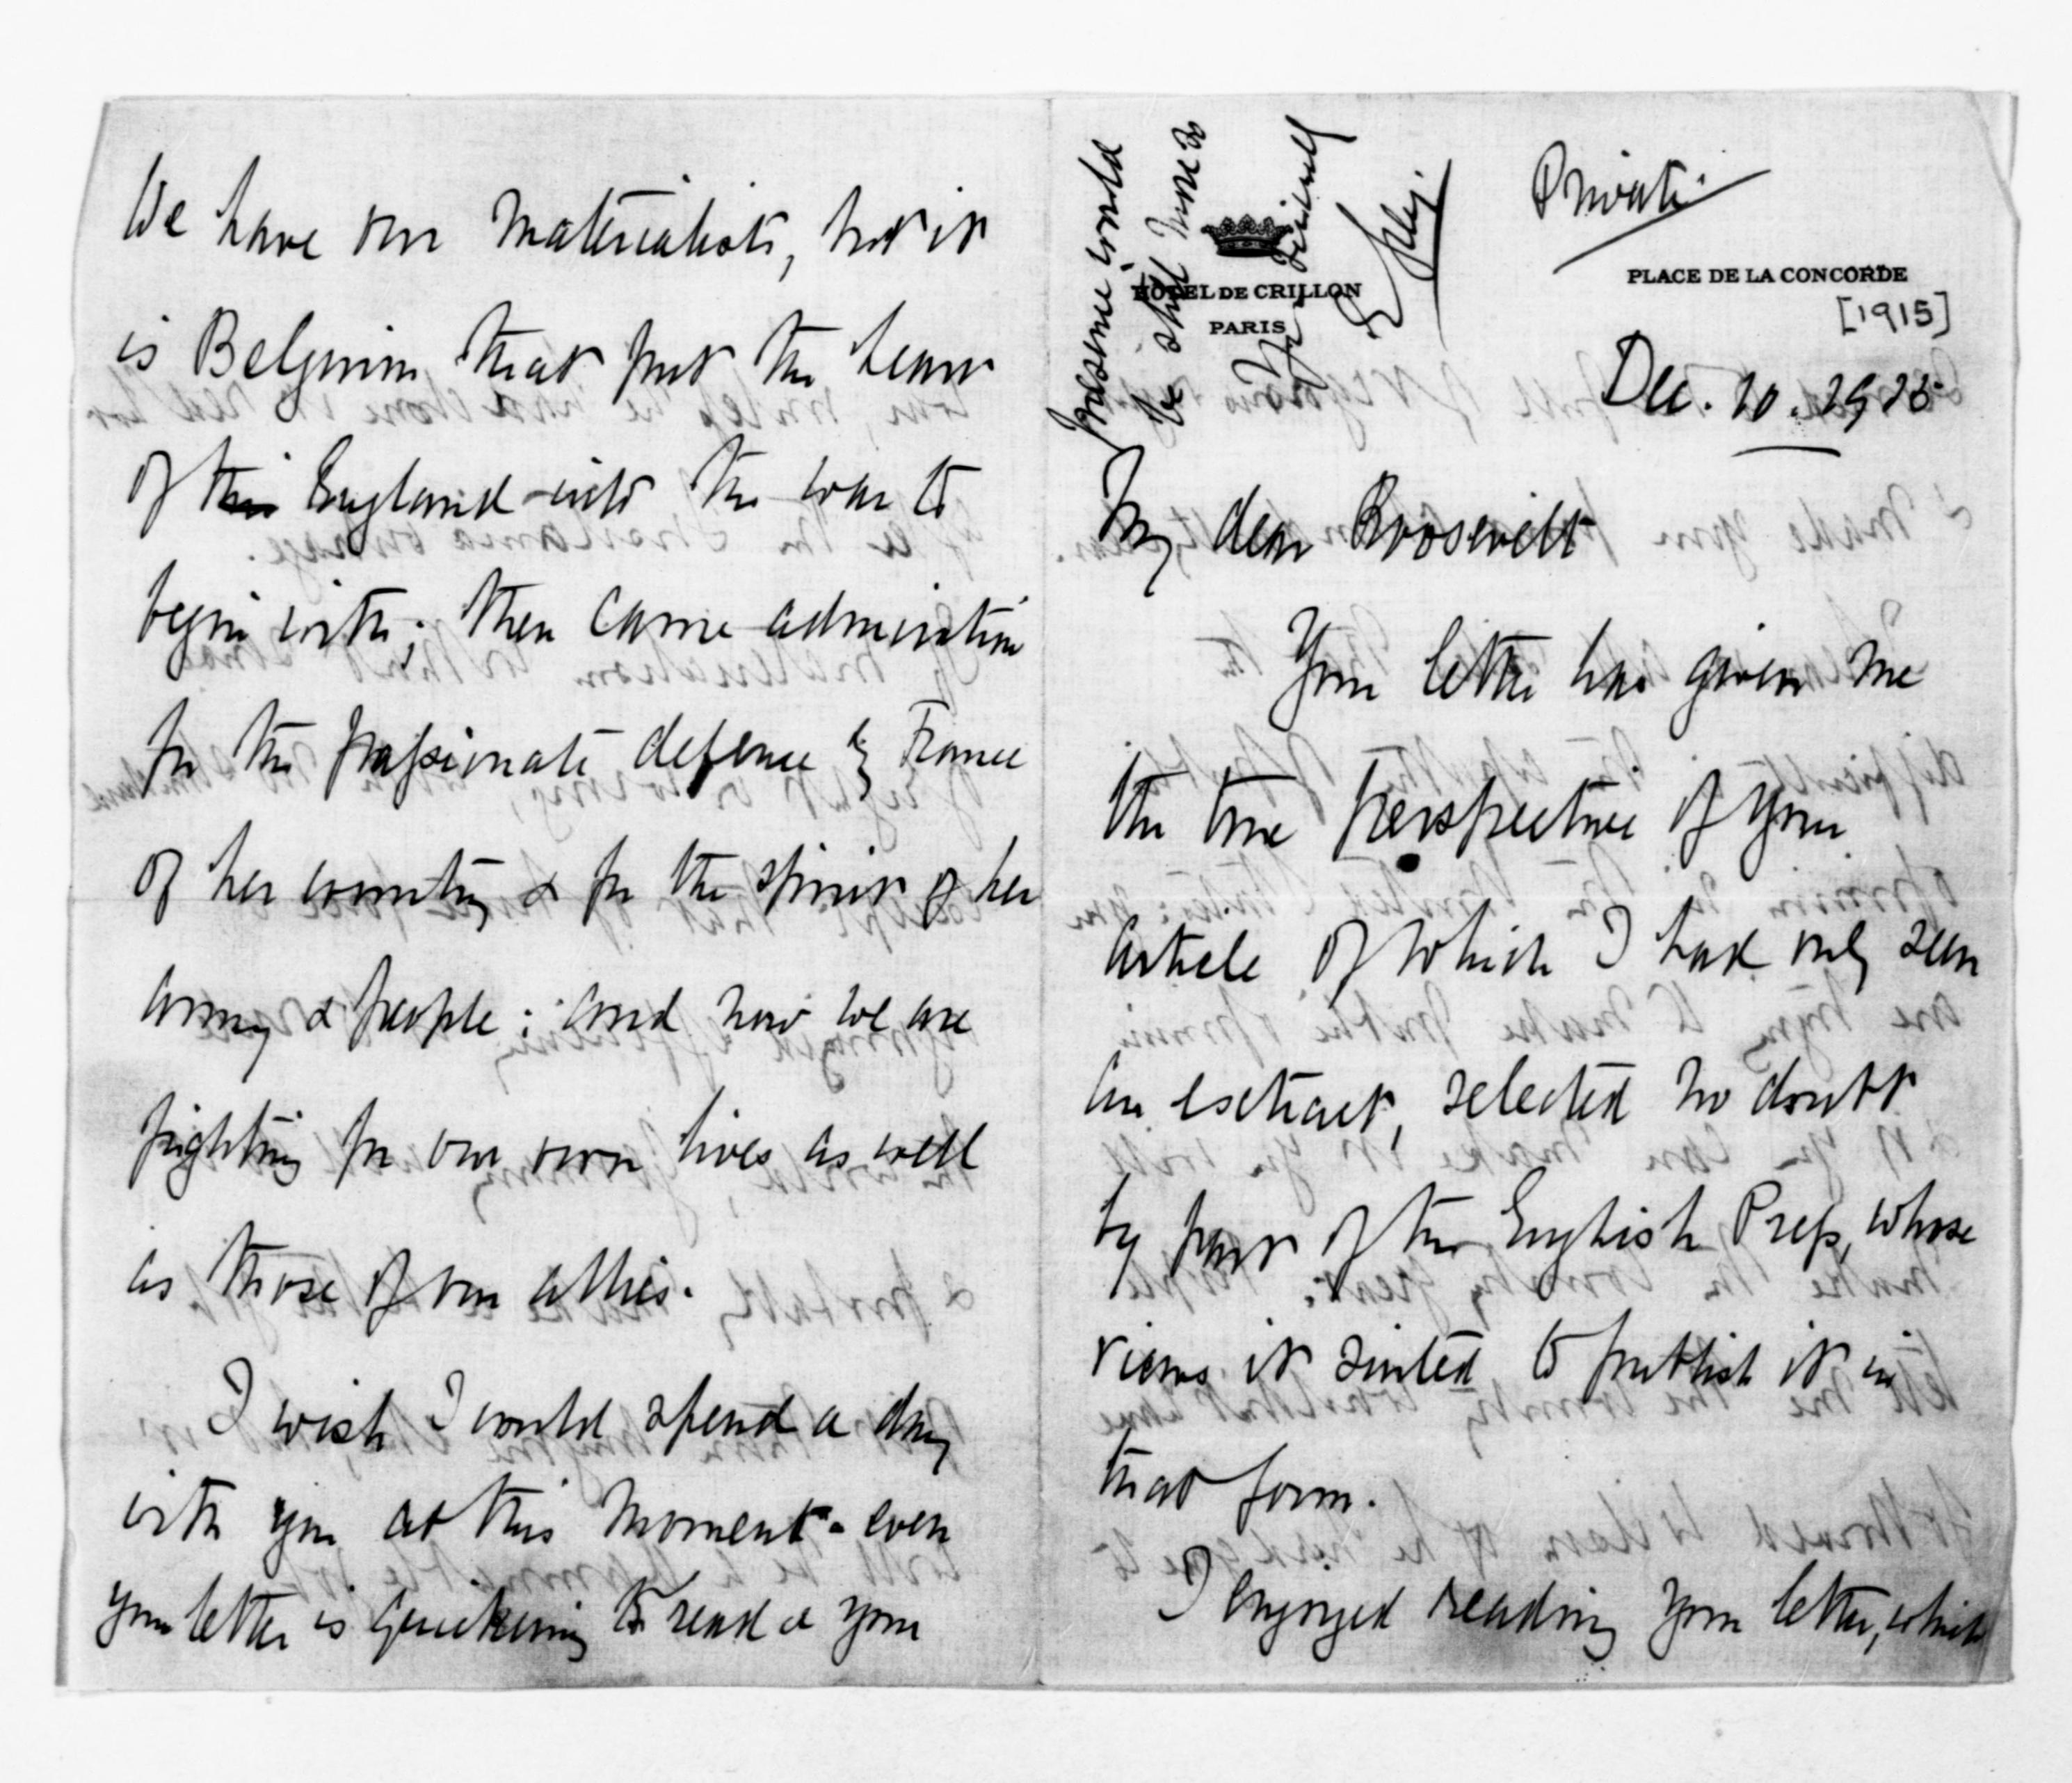 We have our materialists, but it
is Belgium that put the heart
of England into the war to
begin with; then came admiration
for the passionate defence by France
of her country & for the spirit of her
army & people: and now we are
fighting for our own lives as well
as those of our allies.
I wish I could spend a day
with you at this moment - even
your letter is quickening to read & your
presence would
be still more so
Yrs sincerely
E Grey.
Private
HÔTEL DE CRILLON
PARIS
PLACE DE LA CONCORDE
[1915]
Dec. 10. 1915
My dear Roosevelt
Your letter has given me
the true perspective of your
article of which I had only seen
an extract, selected no doubt
by part of the English Press, whose
views it suited to publish it in
that form.
I enjoyed reading your letter, which